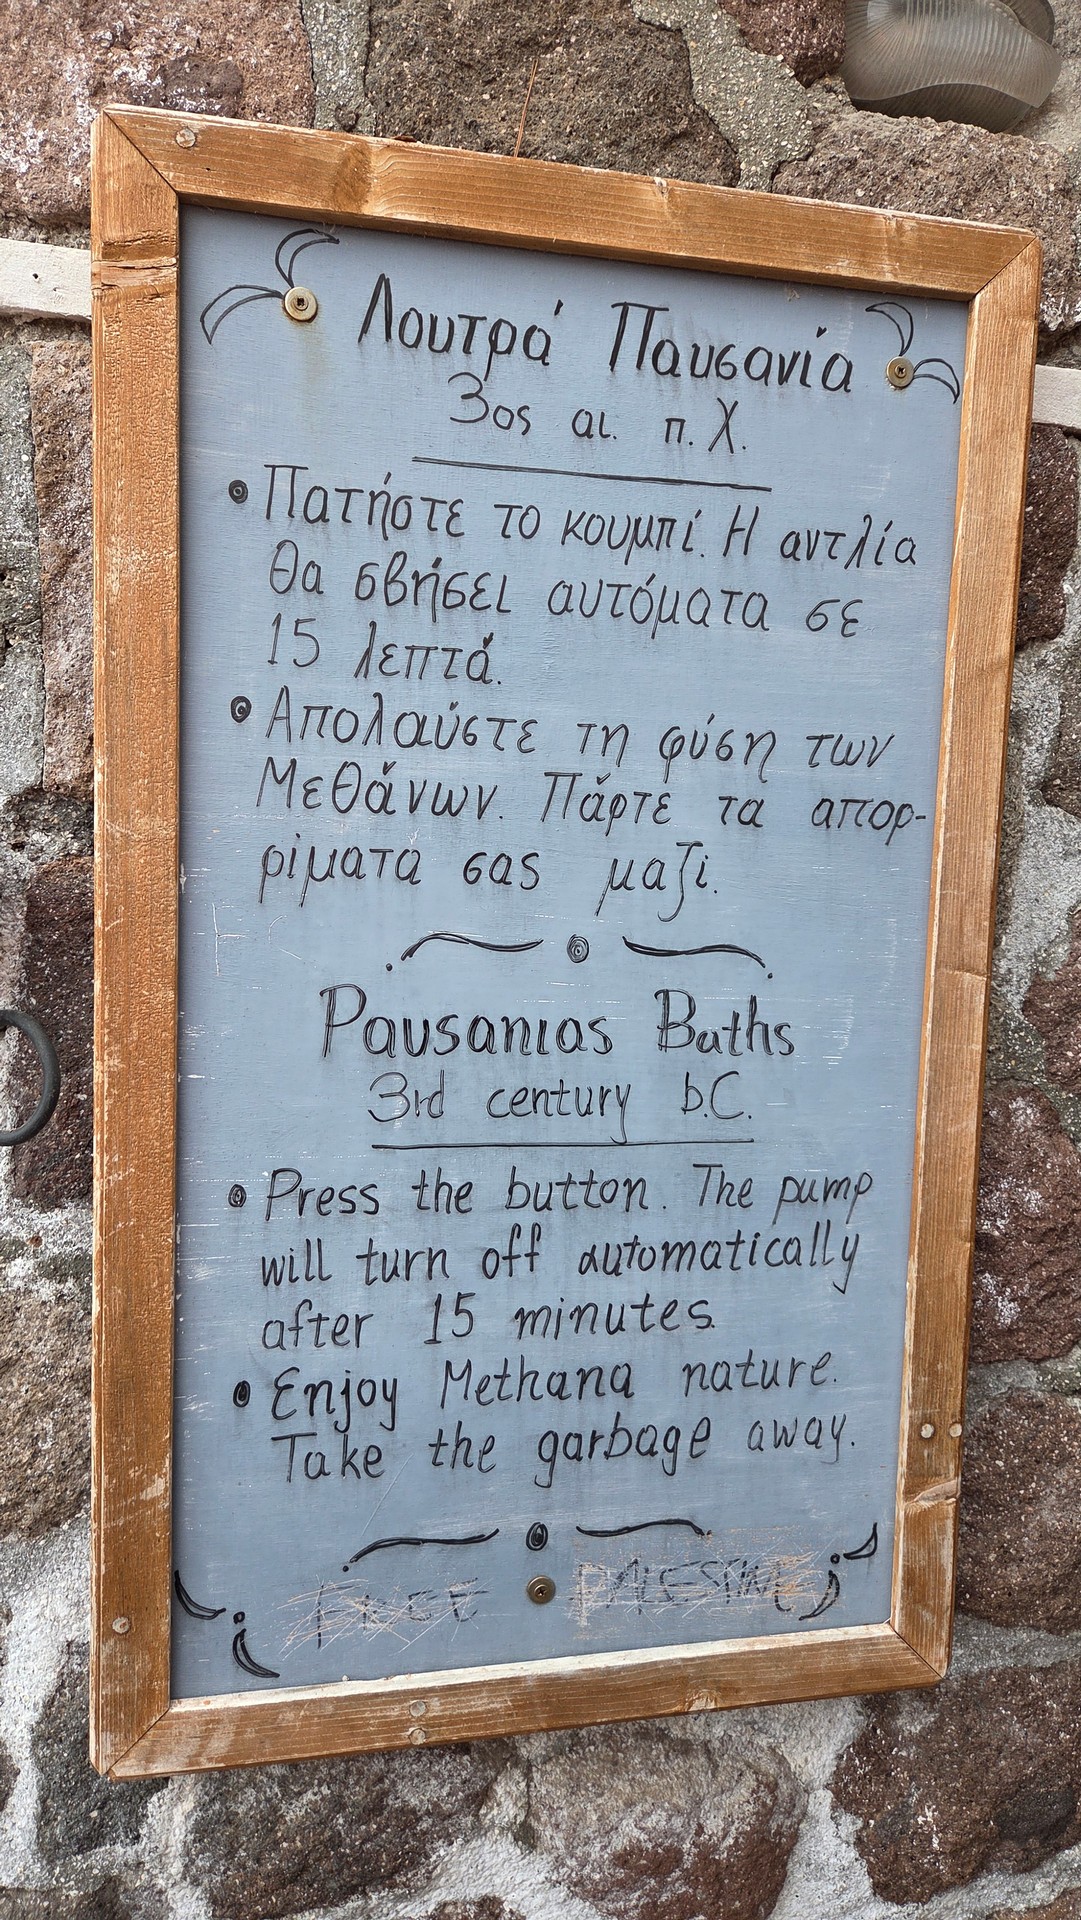 Λουτρά Παυσανία
3ος αι. π.Χ.
• Πατήστε το κουμπί. Η αντλία
θα σβήσει αυτόματα σε
15 λεπτά.
• Απολαύστε τη φύση των
Μεθάνων. Πάρτε τα απορ-
ρίματα σας μαζί.
Pausanias Baths
3rd century b.C.
• Press the button. The pump
will turn off automatically
after 15 minutes.
• Enjoy Methana nature.
Take the garbage away.
FREE PALESTINE